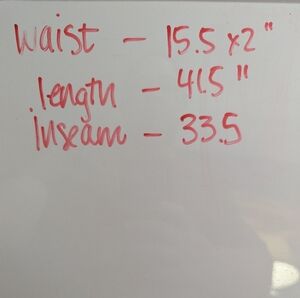 waist - 15.5 x2"
length - 41.5"
inseam - 33.5